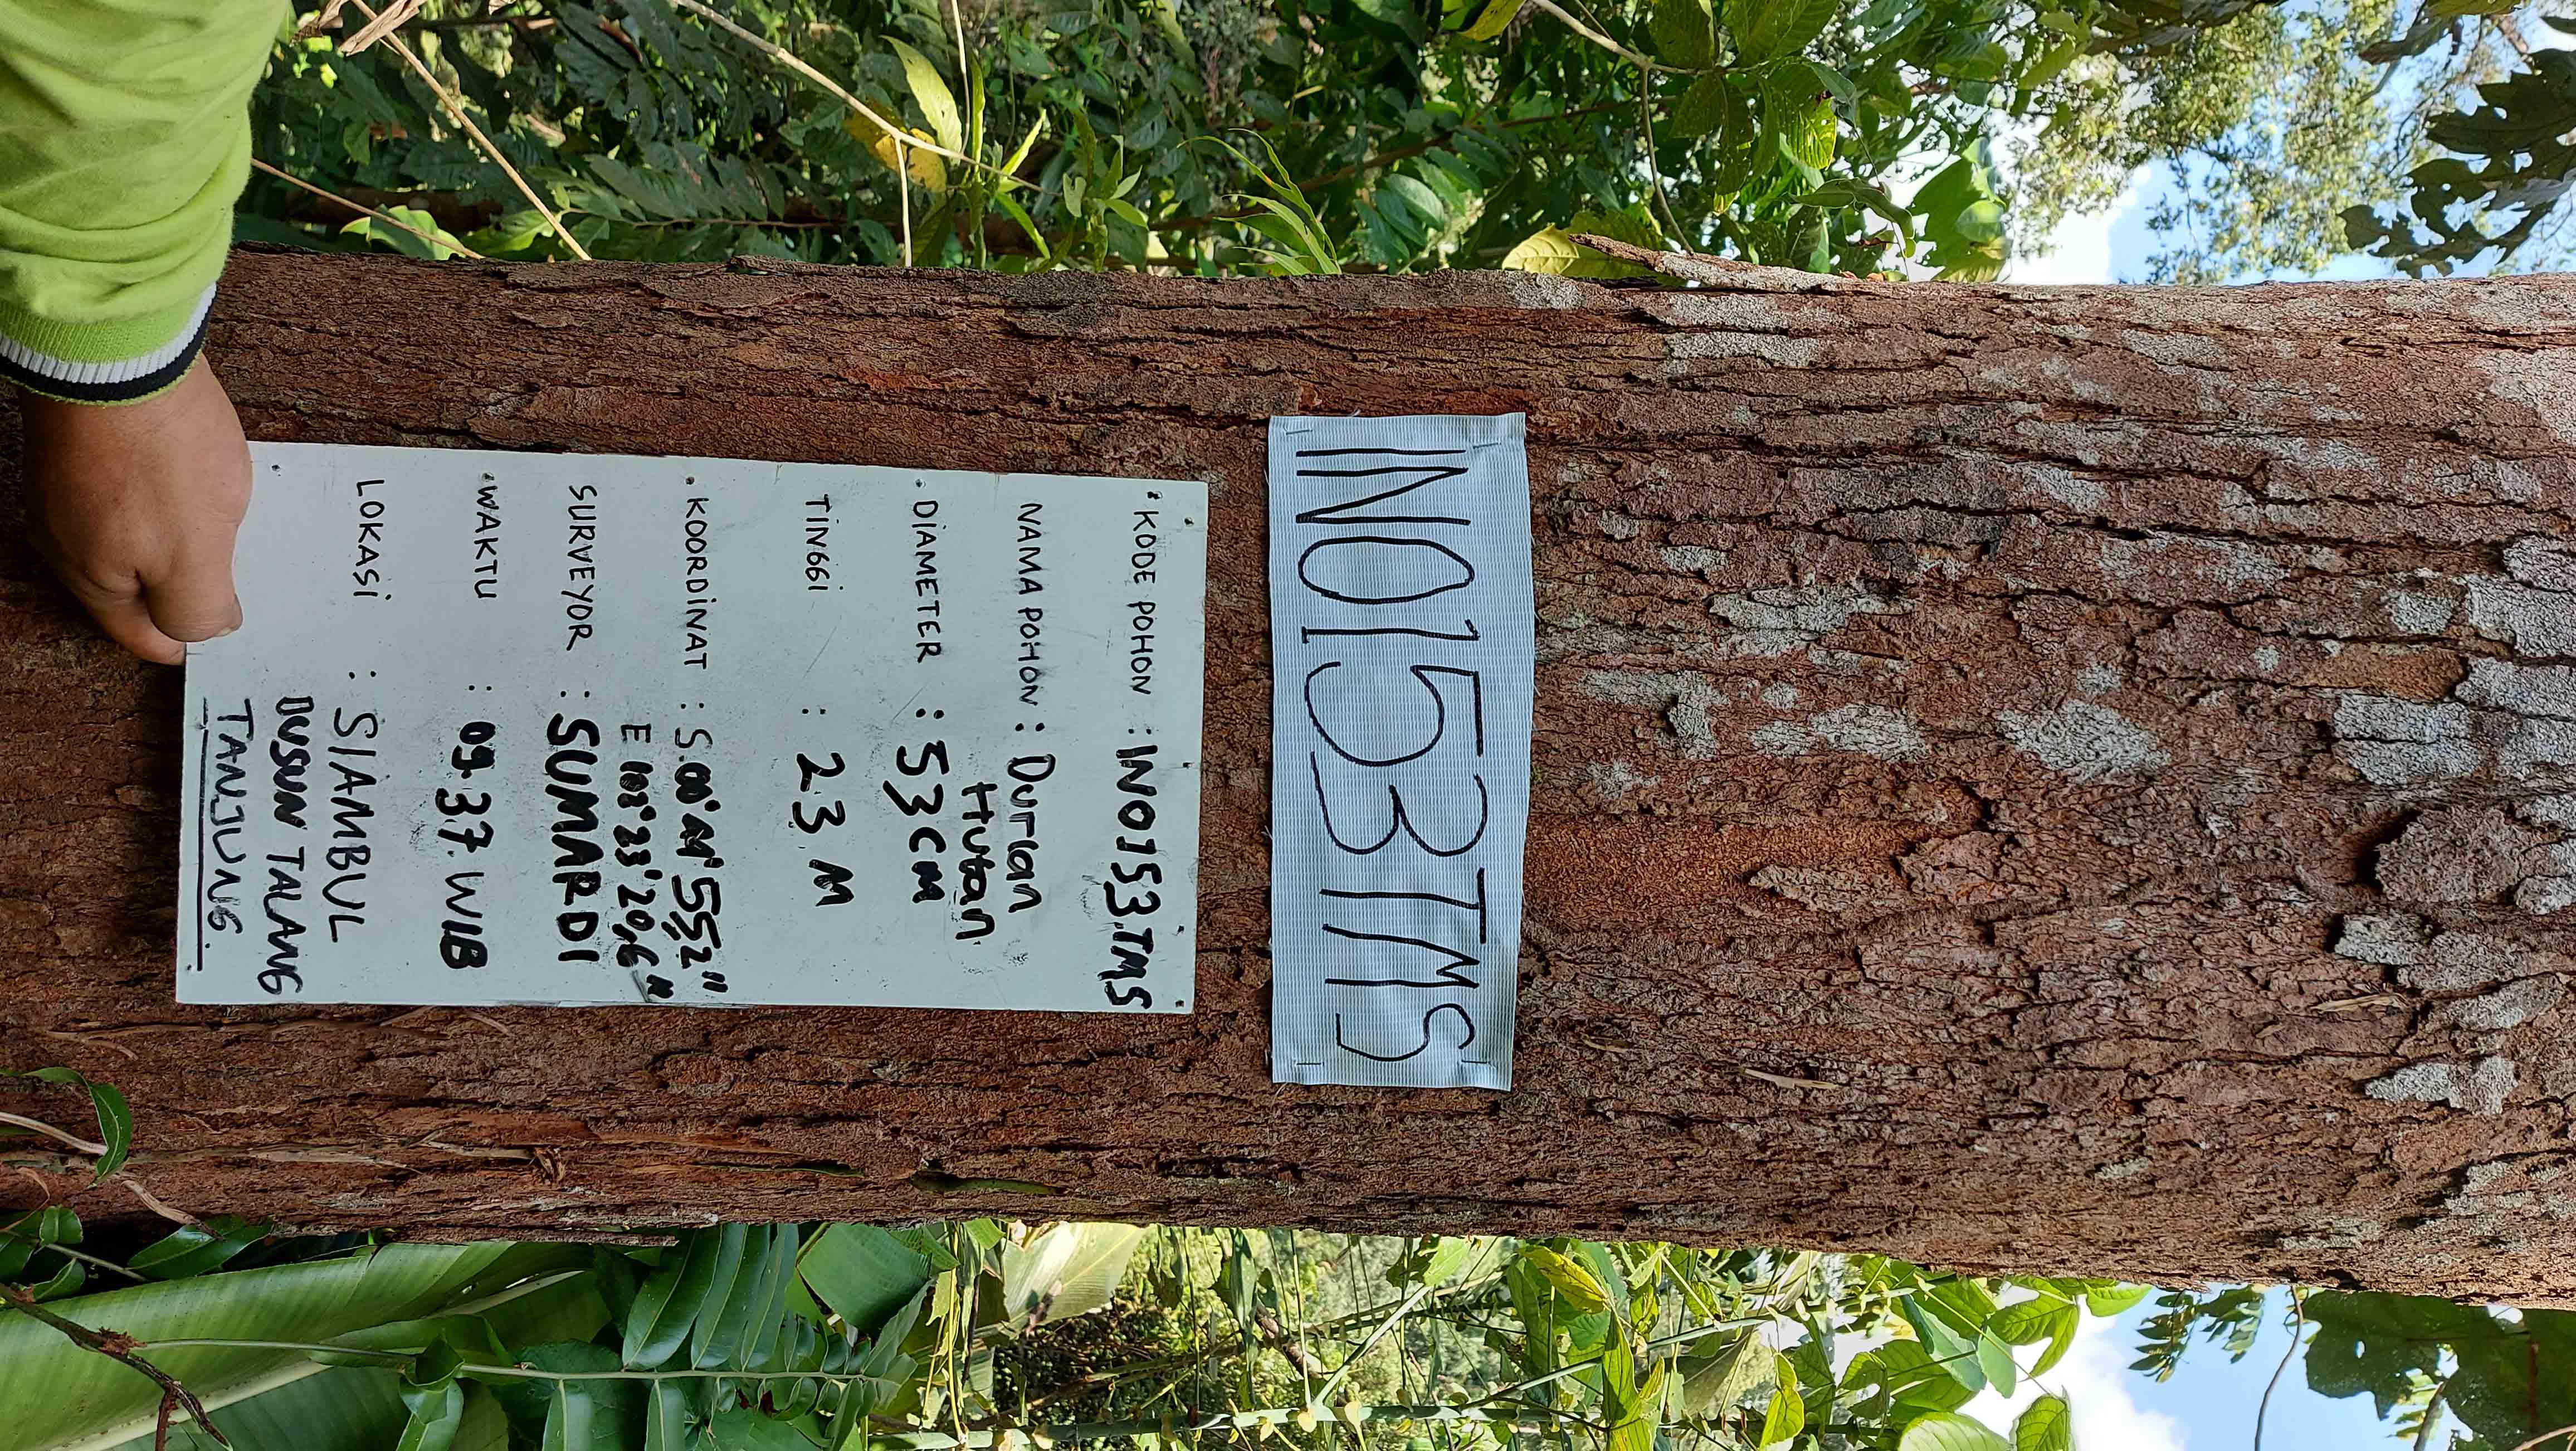 IN0153TMS
KODE POHON : IN0153.TMS
NAMA POHON : Durian
Hutan
DIAMETER : 53 CM
TINGGI : 23 M
KOORDINAT : S.00°44'55,2"
E 102°23'20,6"
SURVEYOR : SUMARDI
WAKTU : 09.37 WIB
LOKASI : SIAMBUL
DUSUN TALANG
TANJUNG.